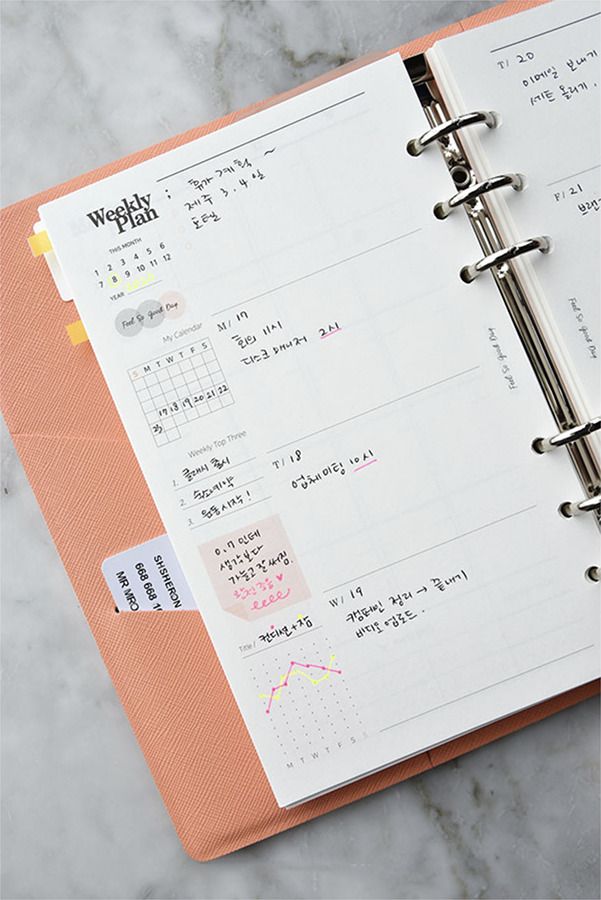 Weekly
Plan
; 휴가 계획 ~
제주 3.4일
호텔
THIS MONTH
1 2 3 4 5 6
7 8 9 10 11 12
YEAR
Feel So Good Day
My Calendar
S M T W T F S
17 18 19 20 21 22
23
Weekly Top Three
1. 클래식 출시
2. 숙소예약
3. 운동시작!
0.7 인데
생각보다
가늘고 잘 써짐.
완전 좋음 ♥
Title / 컨디션 + 잠
M T W T F S S
M / 17
회의 11시
디스크 매니저 2시
T / 18
업체미팅 10시
W / 19
캠페인 정리 → 끝내기
비디오 업로드.
Feel So Good Day
T / 20
이메일 보내기
세트 올리기.
F / 21
Feel So Good Day
SHSHERON
668 668 1
MR MRO